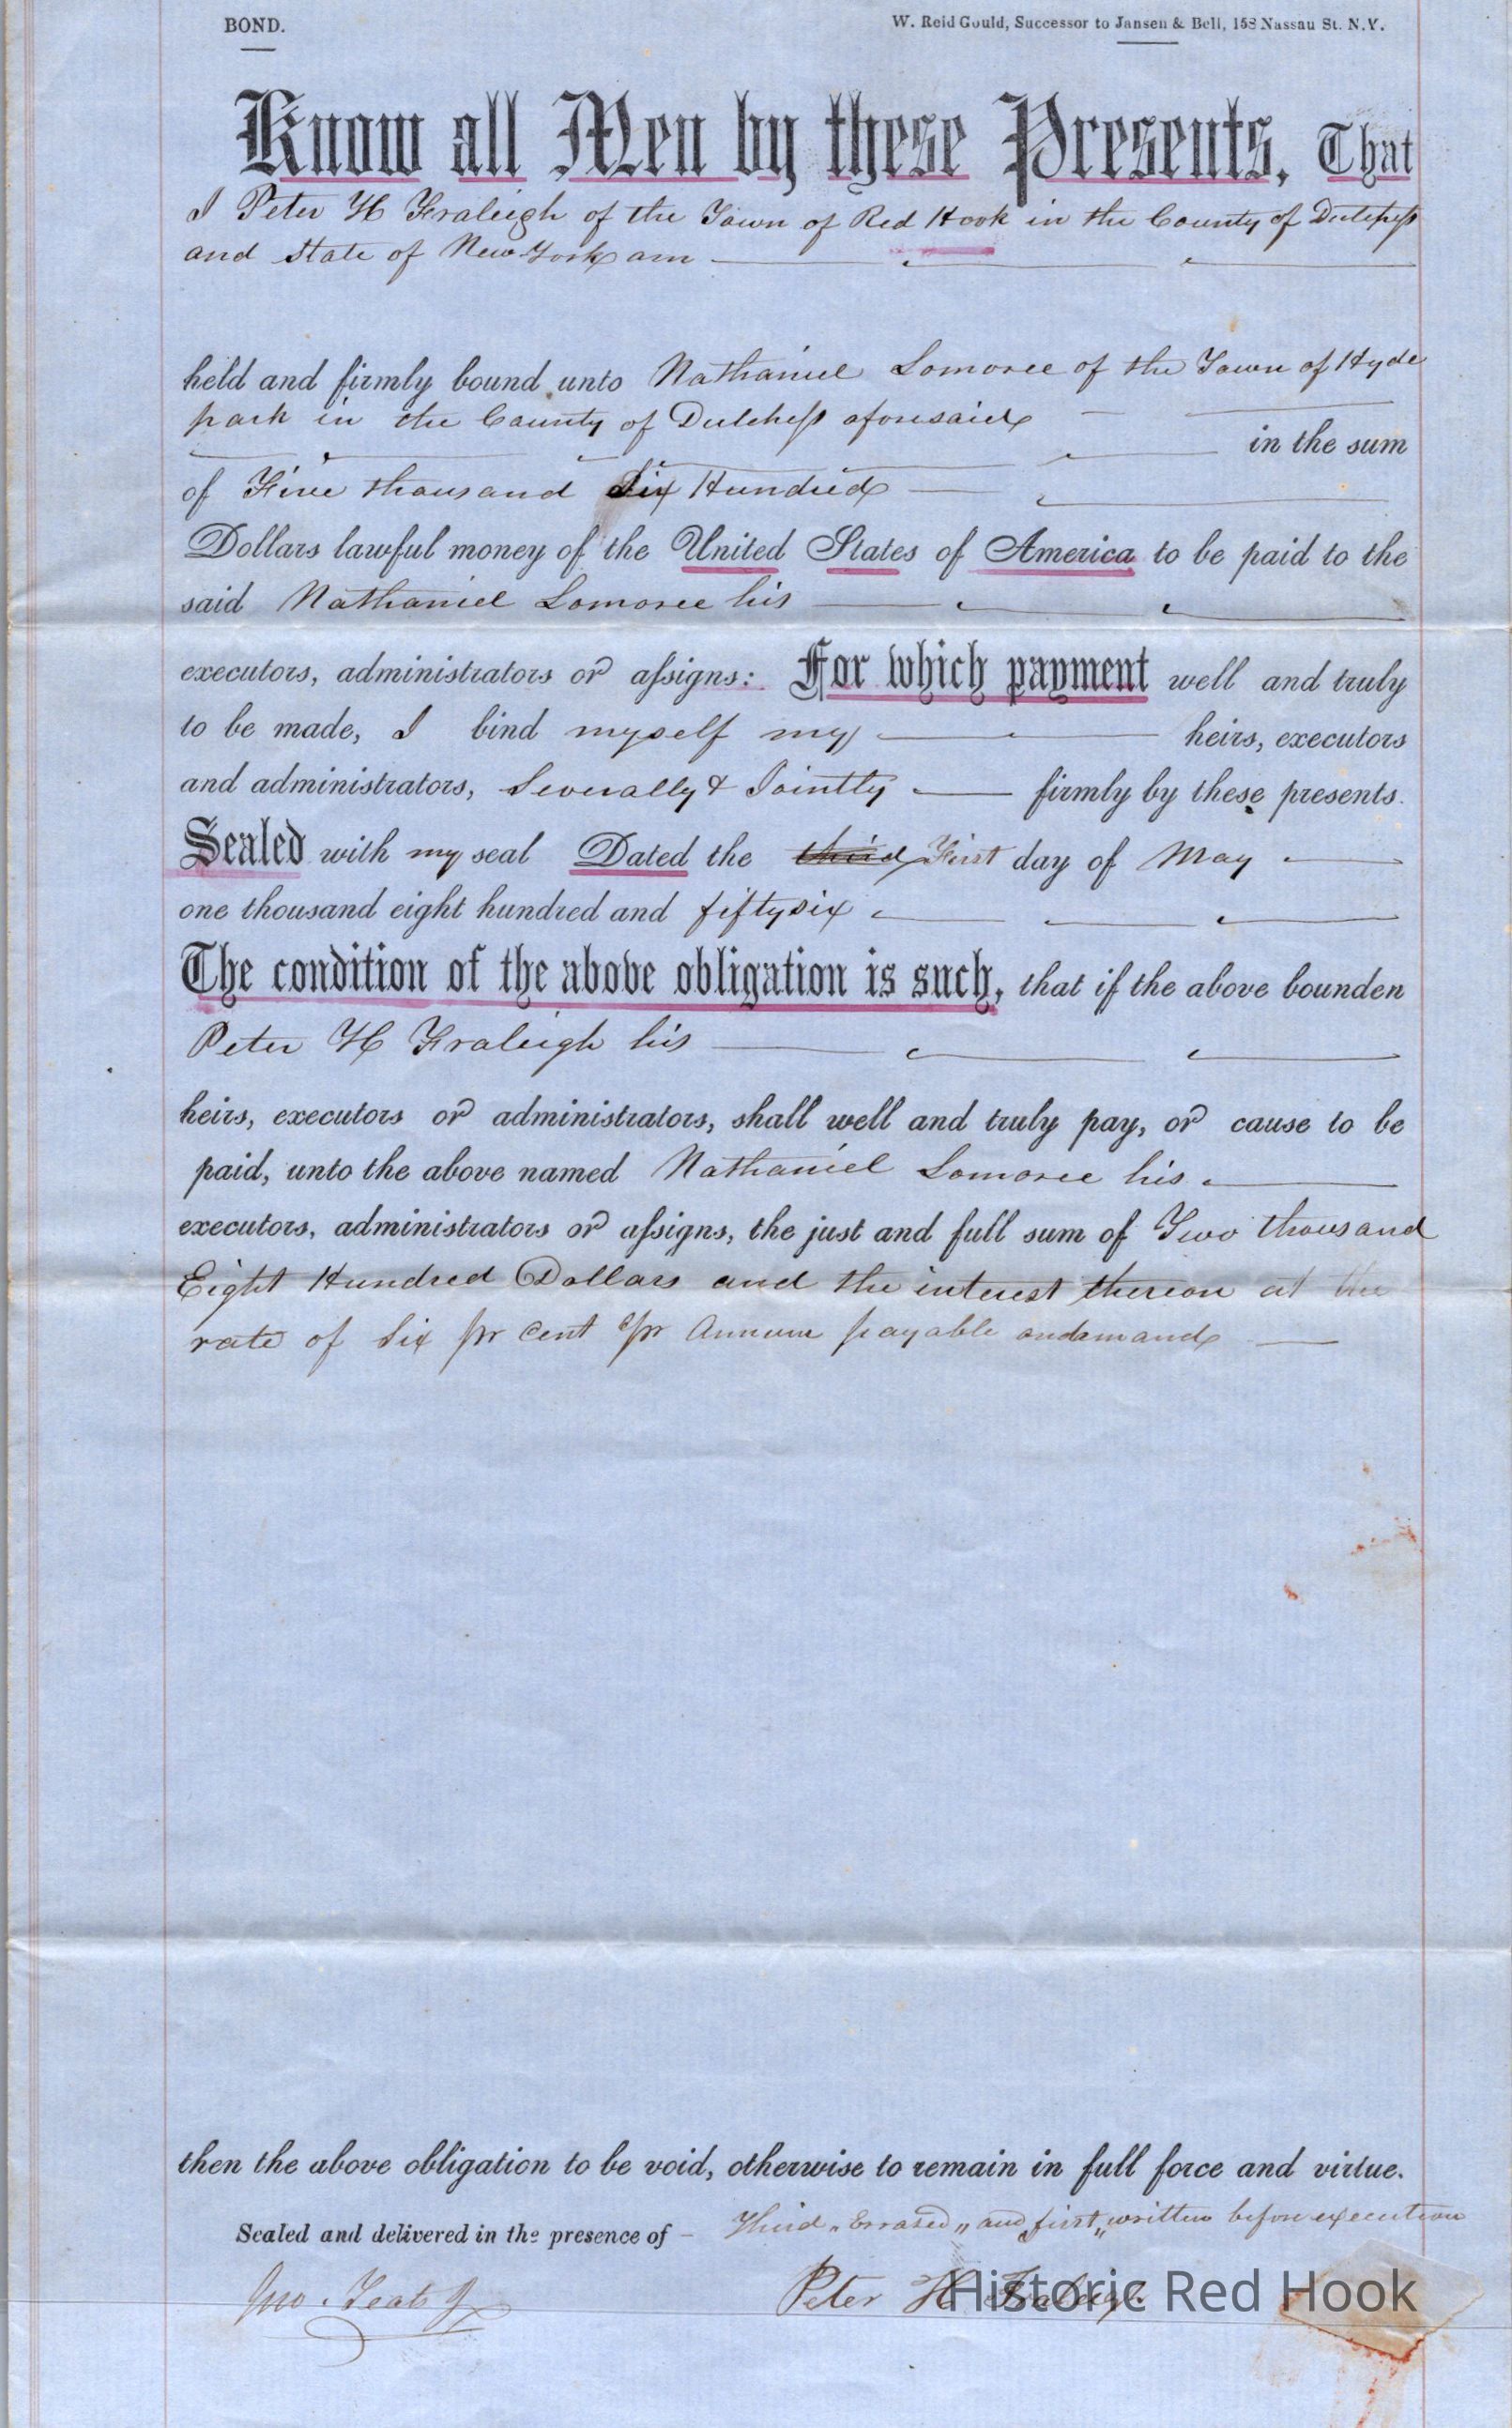 BOND.
W. Reid Gould, Successor to Jansen & Bell, 158 Nassau St. N.Y.
Know all Men by these Presents, That
I Peter H Fraleigh of the Town of Red Hook in the County of Dutchess
and State of New York am
held and firmly bound unto Nathaniel Lomoree of the Town of Hyde
park in the County of Dutchess aforesaid
in the sum
of Five thousand Six Hundred
Dollars lawful money of the United States of America to be paid to the
said Nathaniel Lomoree his
executors, administrators or assigns: For which payment well and truly
to be made, I bind myself my heirs, executors
and administrators, Severally & Jointly firmly by these presents.
Sealed with my seal Dated the third First day of May
one thousand eight hundred and fifty six
The condition of the above obligation is such, that if the above bounden
Peter H Fraleigh his
heirs, executors or administrators, shall well and truly pay, or cause to be
paid, unto the above named Nathaniel Lomoree his
executors, administrators or assigns, the just and full sum of Two thousand
Eight Hundred Dollars and the interest thereon at the
rate of Six pr Cent pr Annum payable on demand
then the above obligation to be void, otherwise to remain in full force and virtue.
Sealed and delivered in the presence of - Third „Errased„ and first„ written before execution
Peter H Fraleigh
Historic Red Hook